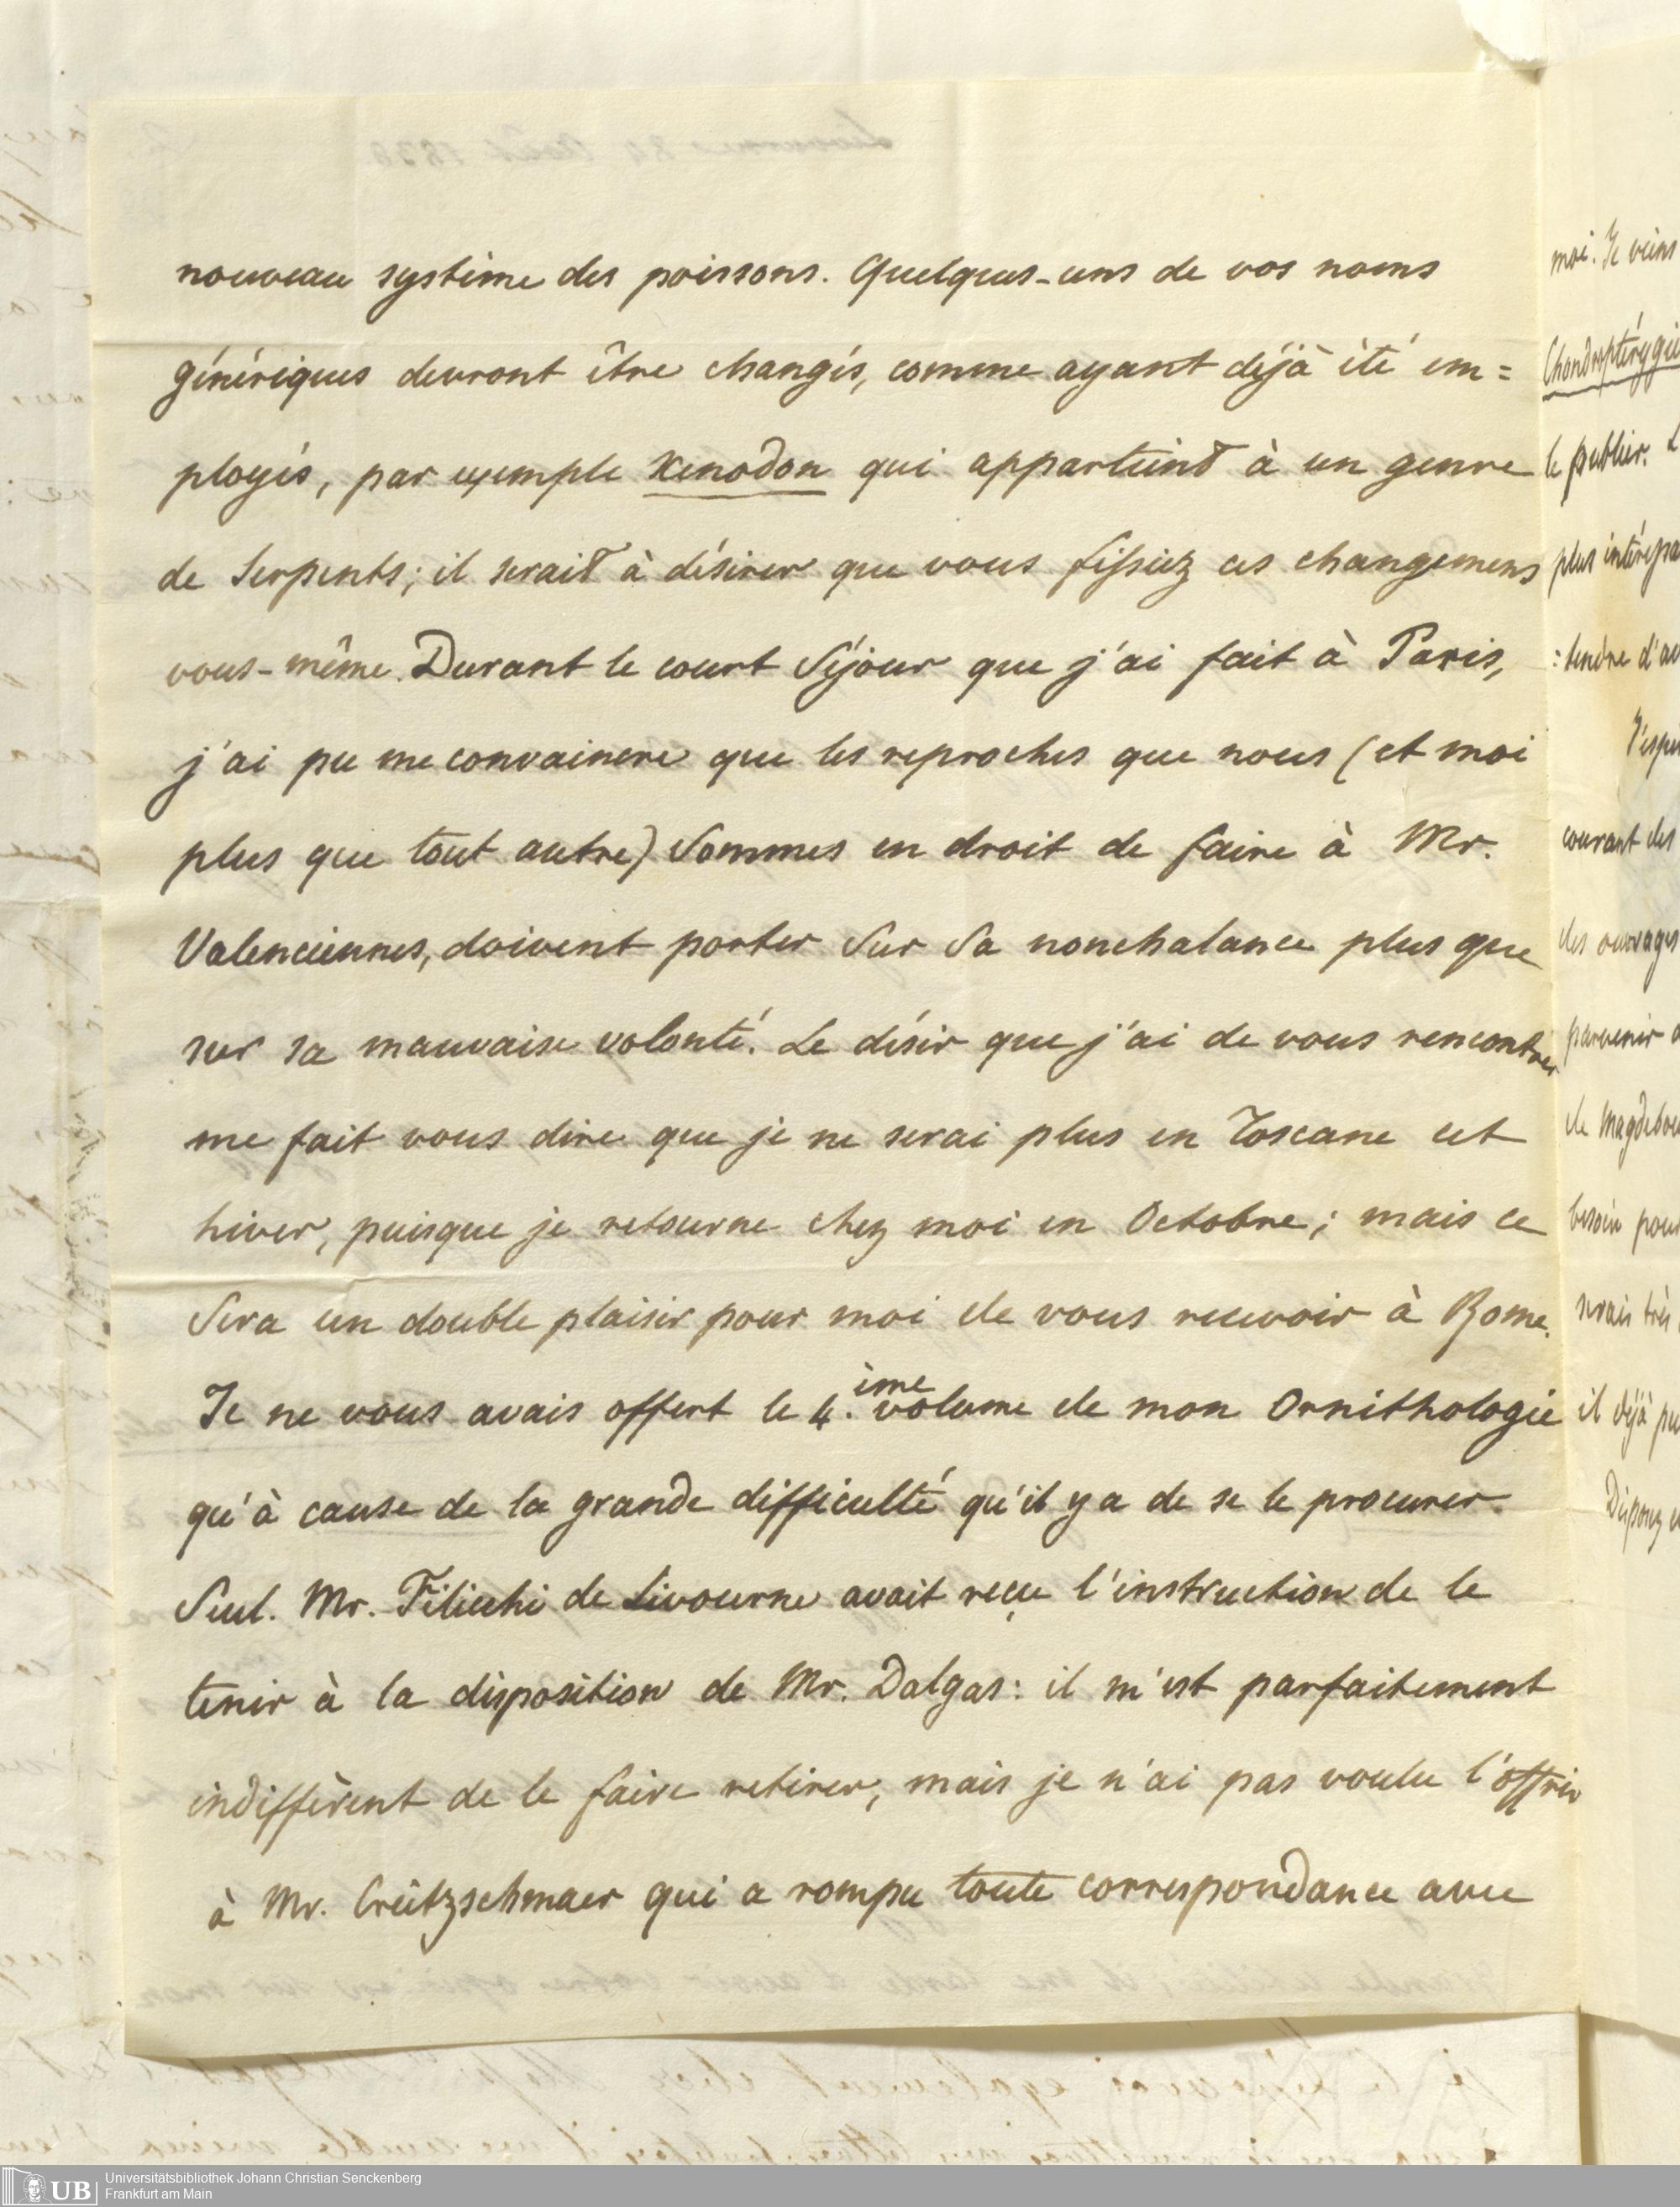 nouveau système des poissons. Quelques-uns de vos noms
génériques devront être changés, comme ayant déjà été em=
ployés, par exemple Xenodon qui appartient à un genre
de Serpents; il serait à désirer que vous fissiez ces changemens
vous-même. Durant le court Séjour que j'ai fait à Paris,
j'ai pu me convaincre que les reproches que nous (et moi
plus que tout autre) Sommes en droit de faire à Mr.
Valenciennes, doivent porter Sur Sa nonchalance plus que
sur sa mauvaise volonté. Le désir que j'ai de vous rencontrer
me fait vous dire que je ne serai plus en Toscane cet
hiver, puisque je retourne chez moi en Octobre; mais ce
Sera un double plaisir pour moi de vous recevoir à Rome.
Je ne vous avais offert le 4.ème volume de mon Ornithologie
qu'à cause de la grande difficulté qu'il y a de se le procurer.
Seul. Mr. Filicchi de Livourne avait reçu l'instruction de le
tenir à la disposition de Mr. Dalgas: il m'est parfaitement
indifférent de le faire retirer, mais je n'ai pas voulu l'offrir
à Mr. Creützschmaer qui a rompu toute correspondance avec
moi. Je viens
Chondroptérygie
le publier.
plus intéressa
:tendre d'av
J'espe
courant des
des ouvrages
parvenir
de Magdebou
besoin pour
serais très
il déjà pu
Disposez
Universitätsbibliothek Johann Christian Senckenberg
UB Frankfurt am Main